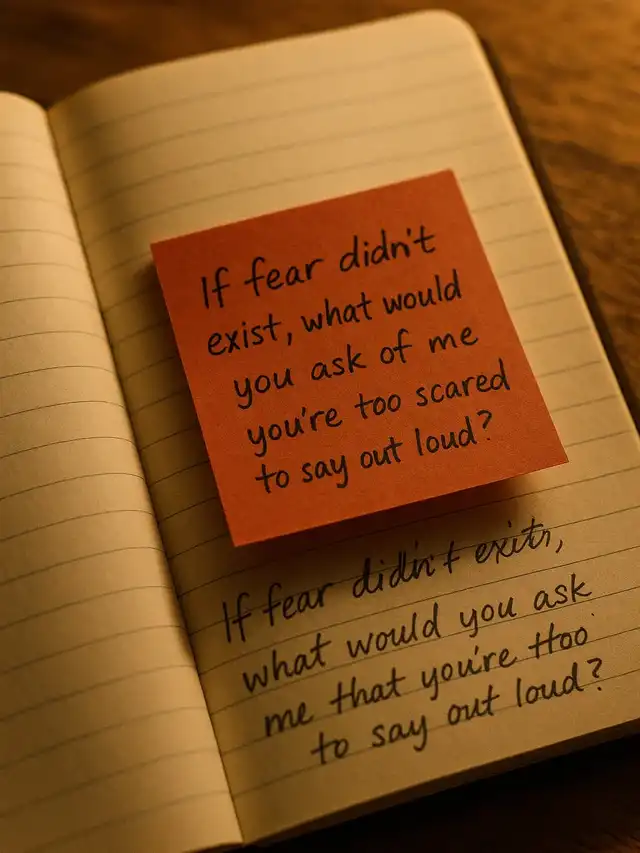 If fear didn't
exist, what would
you ask of me
you're too scared
to say out loud?
If fear didin't exitr,
what would you ask
me that you're thoo
to say out loud?